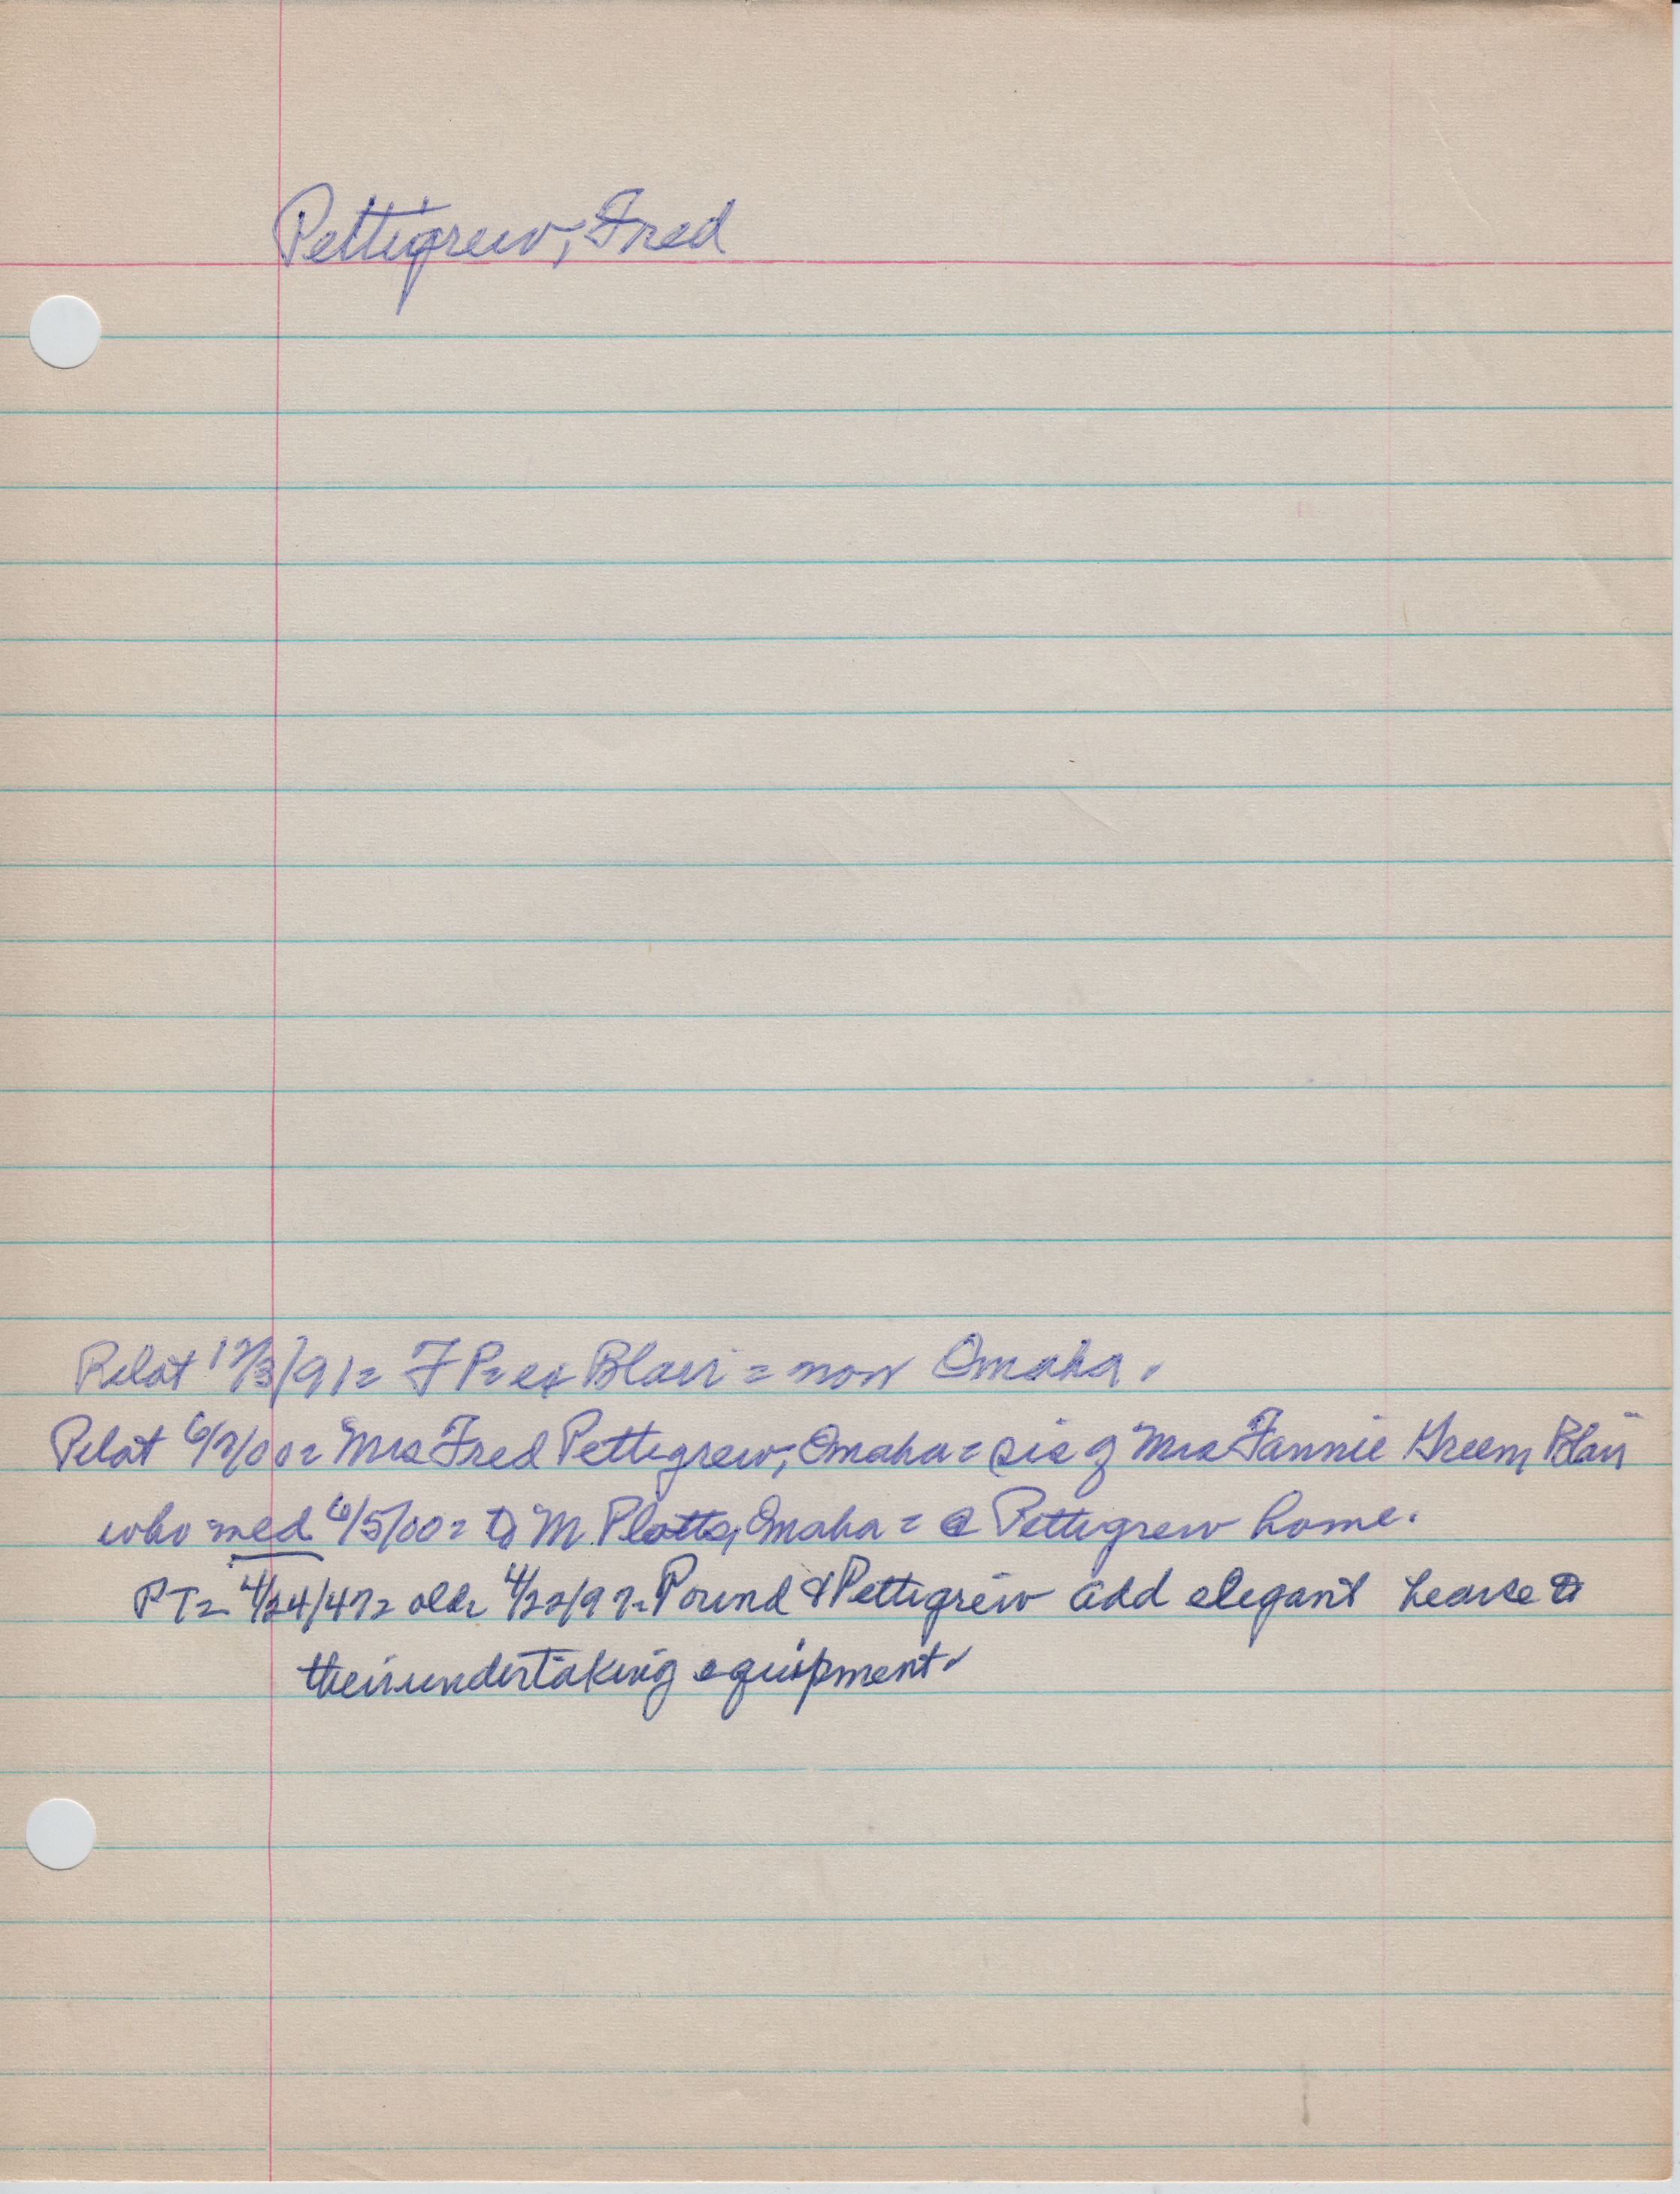 Pettigrew, Fred
Pilot 12/3/91= F P= ex Blair = now Omaha.
Pilot 6/7/00= Mrs Fred Pettigrew, Omaha = sis of Mrs Fannie Green, Blair
who med 6/5/00= to M. Plotts, Omaha = @ Pettigrew home.
PT= 4/24/47= old= 4/22/97= Pound & Pettigrew add elegant hearse to
their undertaking equipment.